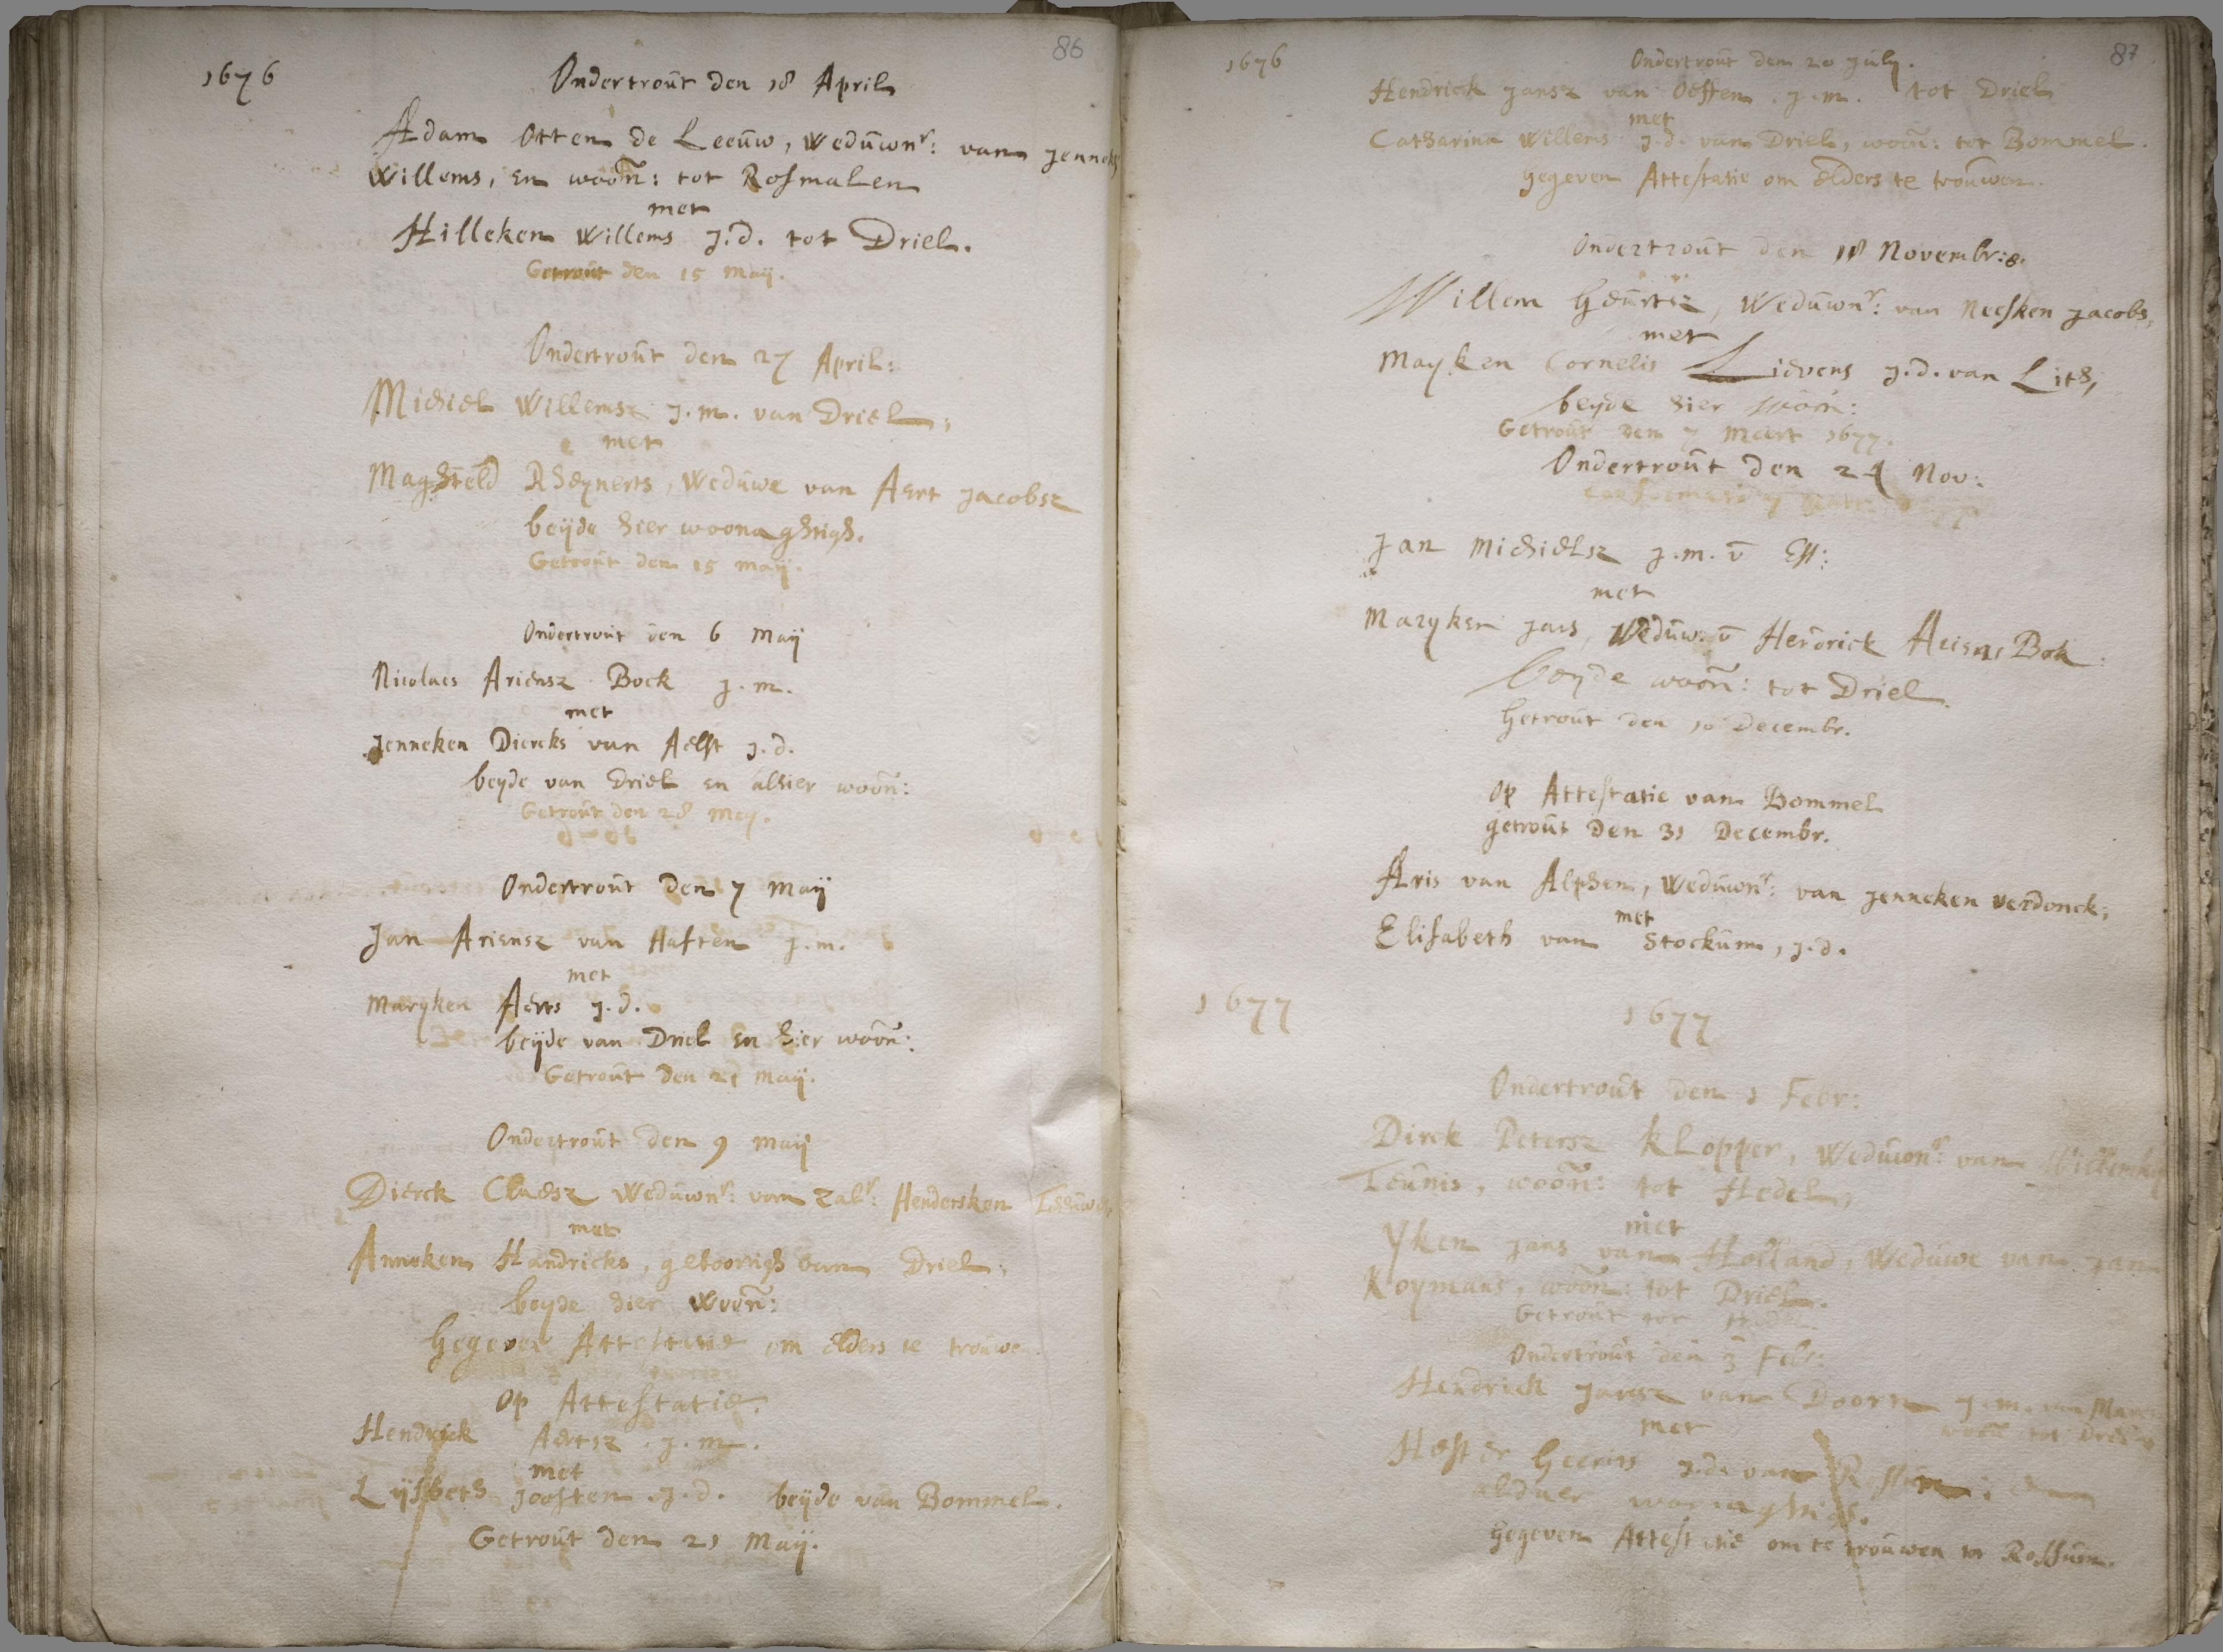 86
1676
Ondertrout den 18 April
Adam Otten de Leeuw, Weduwnr: van Jenneke
Willems, en woon: tot Rosmalen
met
Hilleken Willems J.d. tot Driel.
Getrout den 15 Maij.
Ondertrout den 27 April:
Michiel Willemsz J.m. van Driel,
met
Maghteld Rheynerts, Weduwe van Aert Jacobsz
beijde hier woonaghtigh.
Getrout den 15 Maij.
Ondertrout den 6 Maij
Nicolaes Ariensz Bock J.m.
met
Jenneken Diercks van Aelst J.d.
beyde van Driel en alhier woon:
Getrout den 28 Mey.
Ondertrout den 7 Maij
Jan Ariensz van Haften J.m.
met
Maryken Aerts J.d.
beijde van Driel en hier woon:
Getrout den 21 Maij.
Ondertrout den 9 Maij
Dierck Claesz Weduwnr: van Zalr: Hendersken
met
Anneken Handricks, geboortigh van Driel,
beyde hier woon:
Gegeven Attestatie om elders te trouwen.
Op Attestatie.
Hendrick Aertsz. J.m.
met
Lijsbeth Joosten. J.d. beijde van Bommel.
Getrout den 21 Maij.
87
1676
Ondertrout den 20 July.
Hendrick Jansz van Oeften. J.m. tot Driel
met
Catharina Willems J.d. van Driel, woon: tot Bommel.
gegeven Attestatie om elders te trouwen.
Ondertrout den 18 Novembr:
Willem Geurtsz, Weduwnr: van Neesken Jacobs,
met
Mayken Cornelis Lievens J.d. van Lith,
beyde hier woon:
Getrout den 7 Meert 1677.
Ondertrout den 24 Nov:
Jan Michielsz J.m. v Est:
met
Maryken Jans, Weduw: v Hendrick Ariens Bok:
beyde woon: tot Driel.
Getrout den 10 Decembr.
Op Attestatie van Bommel
getrout den 31 Decembr.
Aris van Alphen, Weduwnr: van Jenneken Verdonck,
met
Elisabeth van Stockum, J.d.
1677
1677
Ondertrout den 1 Febr:
Dirck Petersz Klopper, Weduwnr: van Willemke
Teunis, woon: tot Hedel,
met
Yken Jans van Holland, Weduwe van Jan
Koymans, woon: tot Driel.
Getrout tot Hedel
Ondertrout den 3 Febr:
Hendrick Jansz van Doorn J.m. van
woon tot Driel
met
Hester Geerits J.d. van Rossem:
alduer woonaghtigh.
gegeven Attestatie om te trouwen tot Rossum.